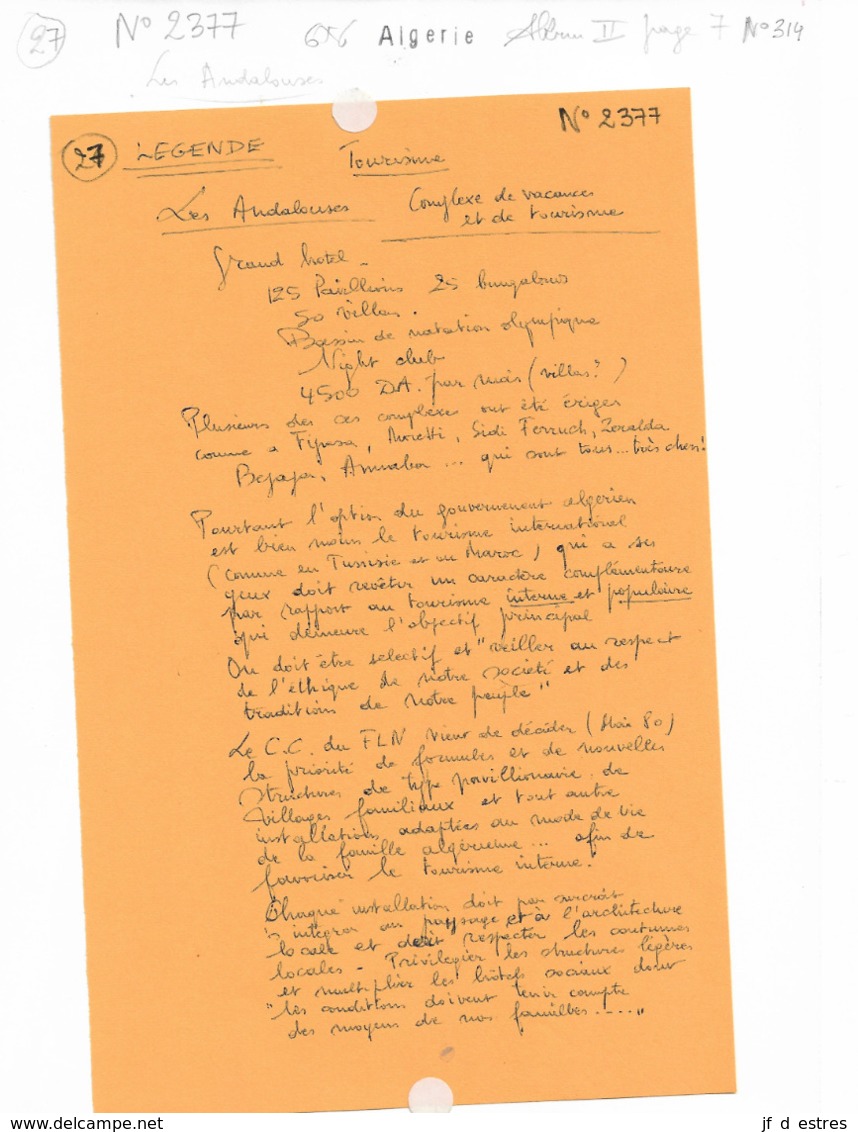 27 N° 2377 656 Algerie Album II page 7 N° 314
Les Andalouses
N° 2377
27 LEGENDE Tourisme
Les Andalouses Complexe de vacances
et de tourisme
Grand hotel -
125 Pavillions 25 bungalows
50 villas.
Bassin de natation olympique
Night club
4500 DA. par mois (villas?)
Plusieurs des ces complexes ont été érigés
comme a Tipasa, Moretti, Sidi Ferruch, Zeralda
Bejaja, Annaba... qui sont tous... très chers!
Pourtant l'option du gouvernement algerien
est bien moins le tourisme international
(comme en Tunisie et au Maroc) qui a ses
yeux doit revêtir un caractère complémentaire
par rapport au tourisme interne et populaire
qui demeure l'objectif principal
On doit être selectif et "veiller au respect
de l'éthique de notre société et des
traditions de notre peuple"
Le C.C. du FLN vient de décider (Mai 80)
la priorité de formules et de nouvelles
structures de type pavillionaire, de
villages familiaux et tout autre
installations adaptées au mode de vie
de la famille algérienne... afin de
favoriser le tourisme interne.
Chaque installation doit par surcroit
s'intégrer au paysage et à l'architecture
locale et doit respecter les coutumes
locales - Privilegier les structures légères
et multiplier les hôtels sociaux dont
"les conditions doivent tenir compte
des moyens de nos familles....."
www.delcampe.net jf d estres